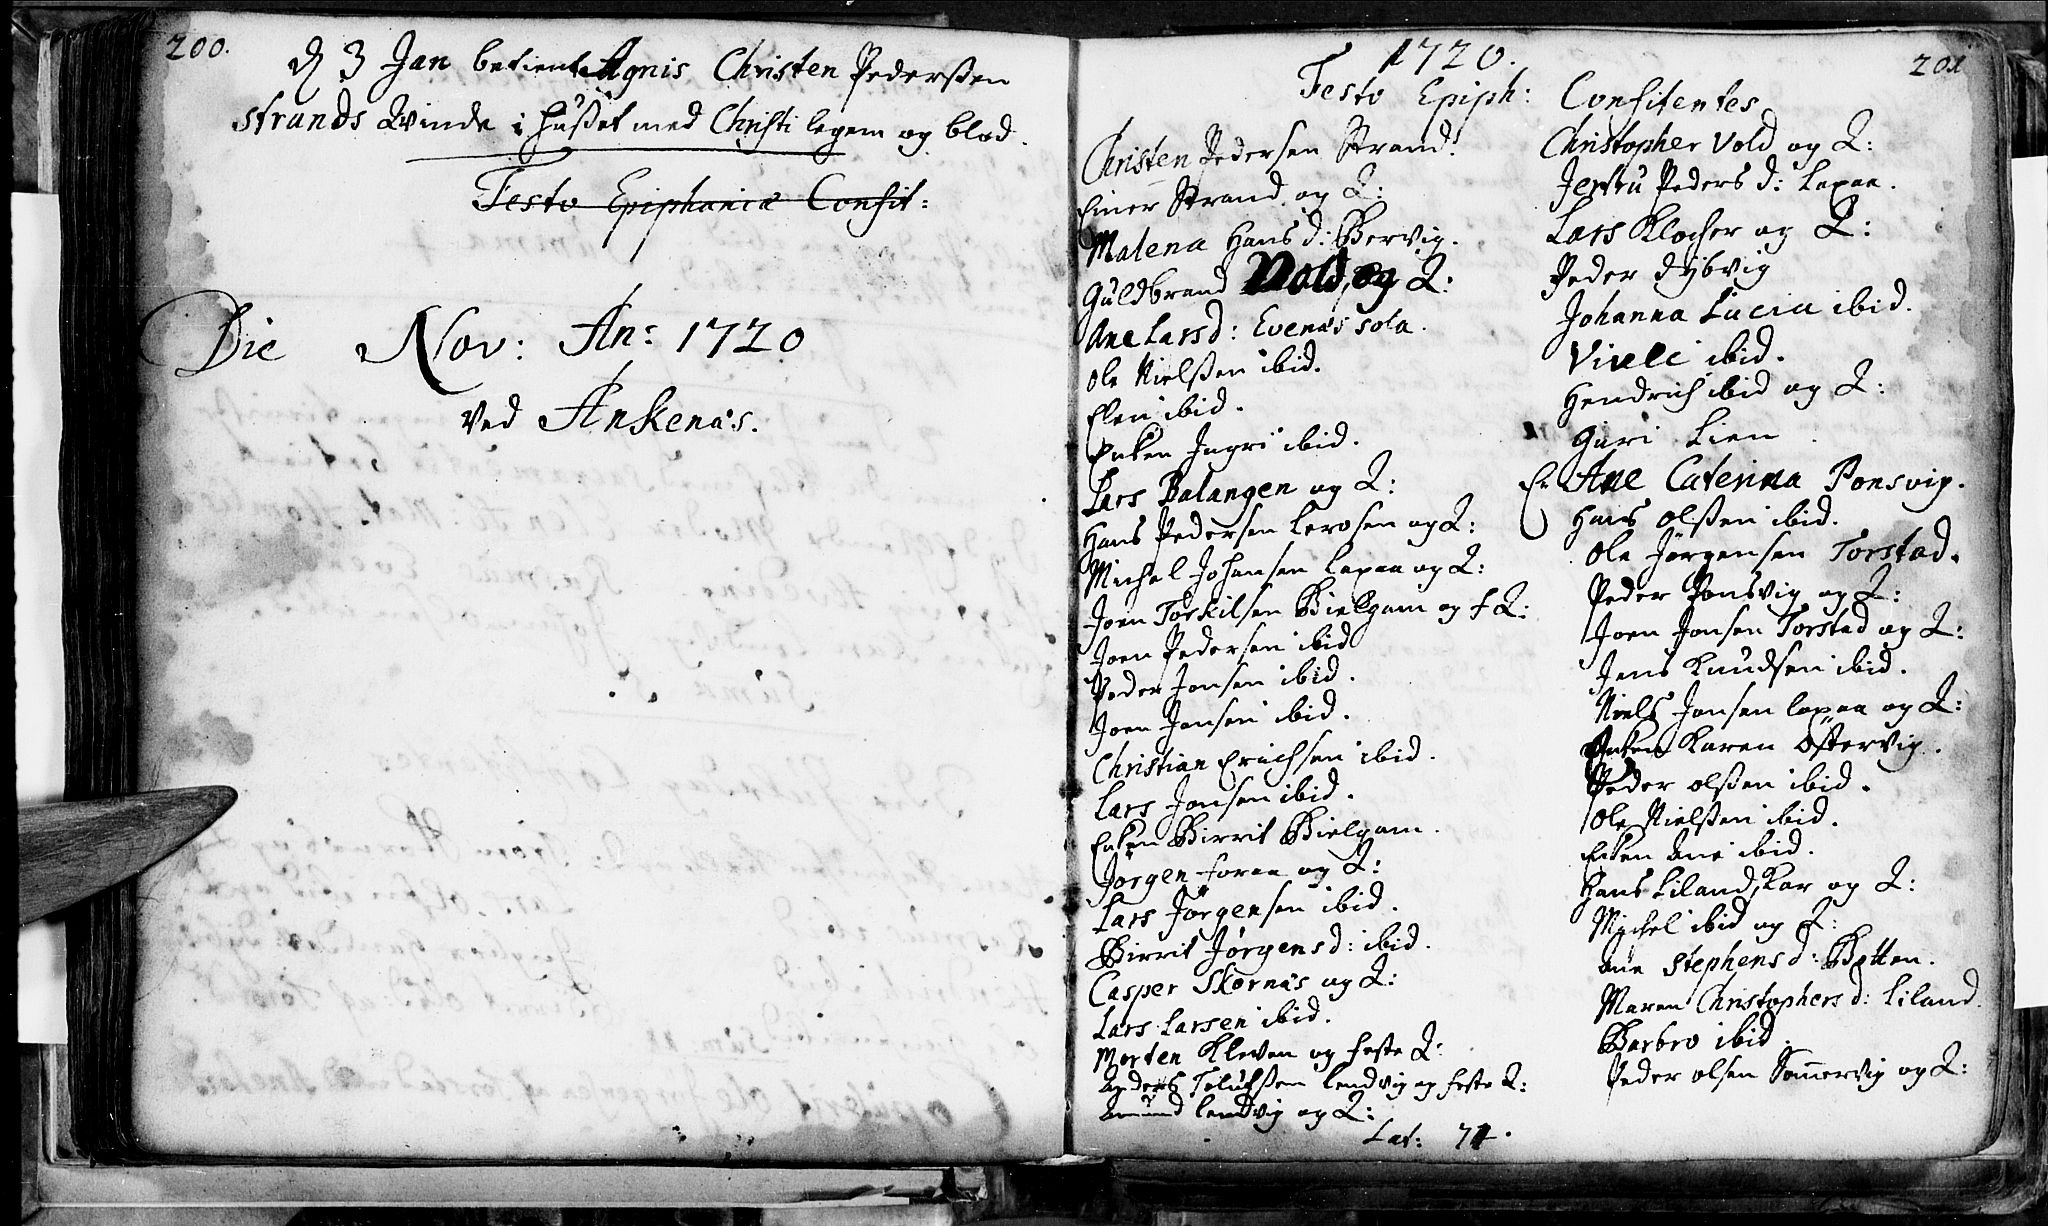 200.
d 3 Jan betient Agnis Christen Pederßen
strands Qvinde i hußet med Christi legem og blod.
Festo Epiphaniæ Confit:
Die Nov: An: 1720
Ved Ankenæs.
1720.
201
Festo Epiph: Confitentes
Christen Pedersen Strand.
Einer Strand og Q:
Malena Hans d: Bervig.
Guldbrand Vold og Q:
Ane Lars d: Evenæs sola.
Ole Nielßen ibid.
Elen ibid.
Enken Ingri ibid.
Lars Balangen og Q:
Hans Pedersen Lerosen og Q:
Michel Johansen Lapaa og Q:
Joen Torkilsen Bielgam og f Q:
Joen Pedersen ibid
Peder Jonsen ibid.
Joen Jonsen ibid.
Christian Erichsen ibid.
Lars Jonsen ibid.
Enken Birrit Bielgam.
Jörgen foraa og Q:
Lars Jörgensen ibid.
Birrit Jørgens d: ibid.
Casper Skornæs og Q:
Lars Larsen ibid.
Morten Kleven og feste Q:
Anders Tolufßen lendvig og feste Q:
Amund lendvig og Q:
Lat: 71.
Christopher Vold og Q:
Jertru Peders d: Lapaa.
Lars Klocher og Q:
Peder dybvig
Johanna Lucia ibid.
Vivele ibid.
Hendrich ibid og Q:
Guri Lien
E. Ane Caterina Ponsvig.
Hans olßen ibid.
Ole Jørgensen Torstad.
Peder Ponsvig og Q:
Joen Jonsen Torstad og Q:
Jens Knudsen ibid.
Niels Jonsen Lapaa og Q:
Enken Karen Østervig.
Peder olßen ibid.
Ole Nielßen ibid.
Enken Ane ibid.
Hans Liland, Kar og Q:
Michel ibid og Q:
Ane Stephens d: Botten.
Maren Christophers d: Liland.
Barbro ibid.
Peder olsen Somervig og Q: